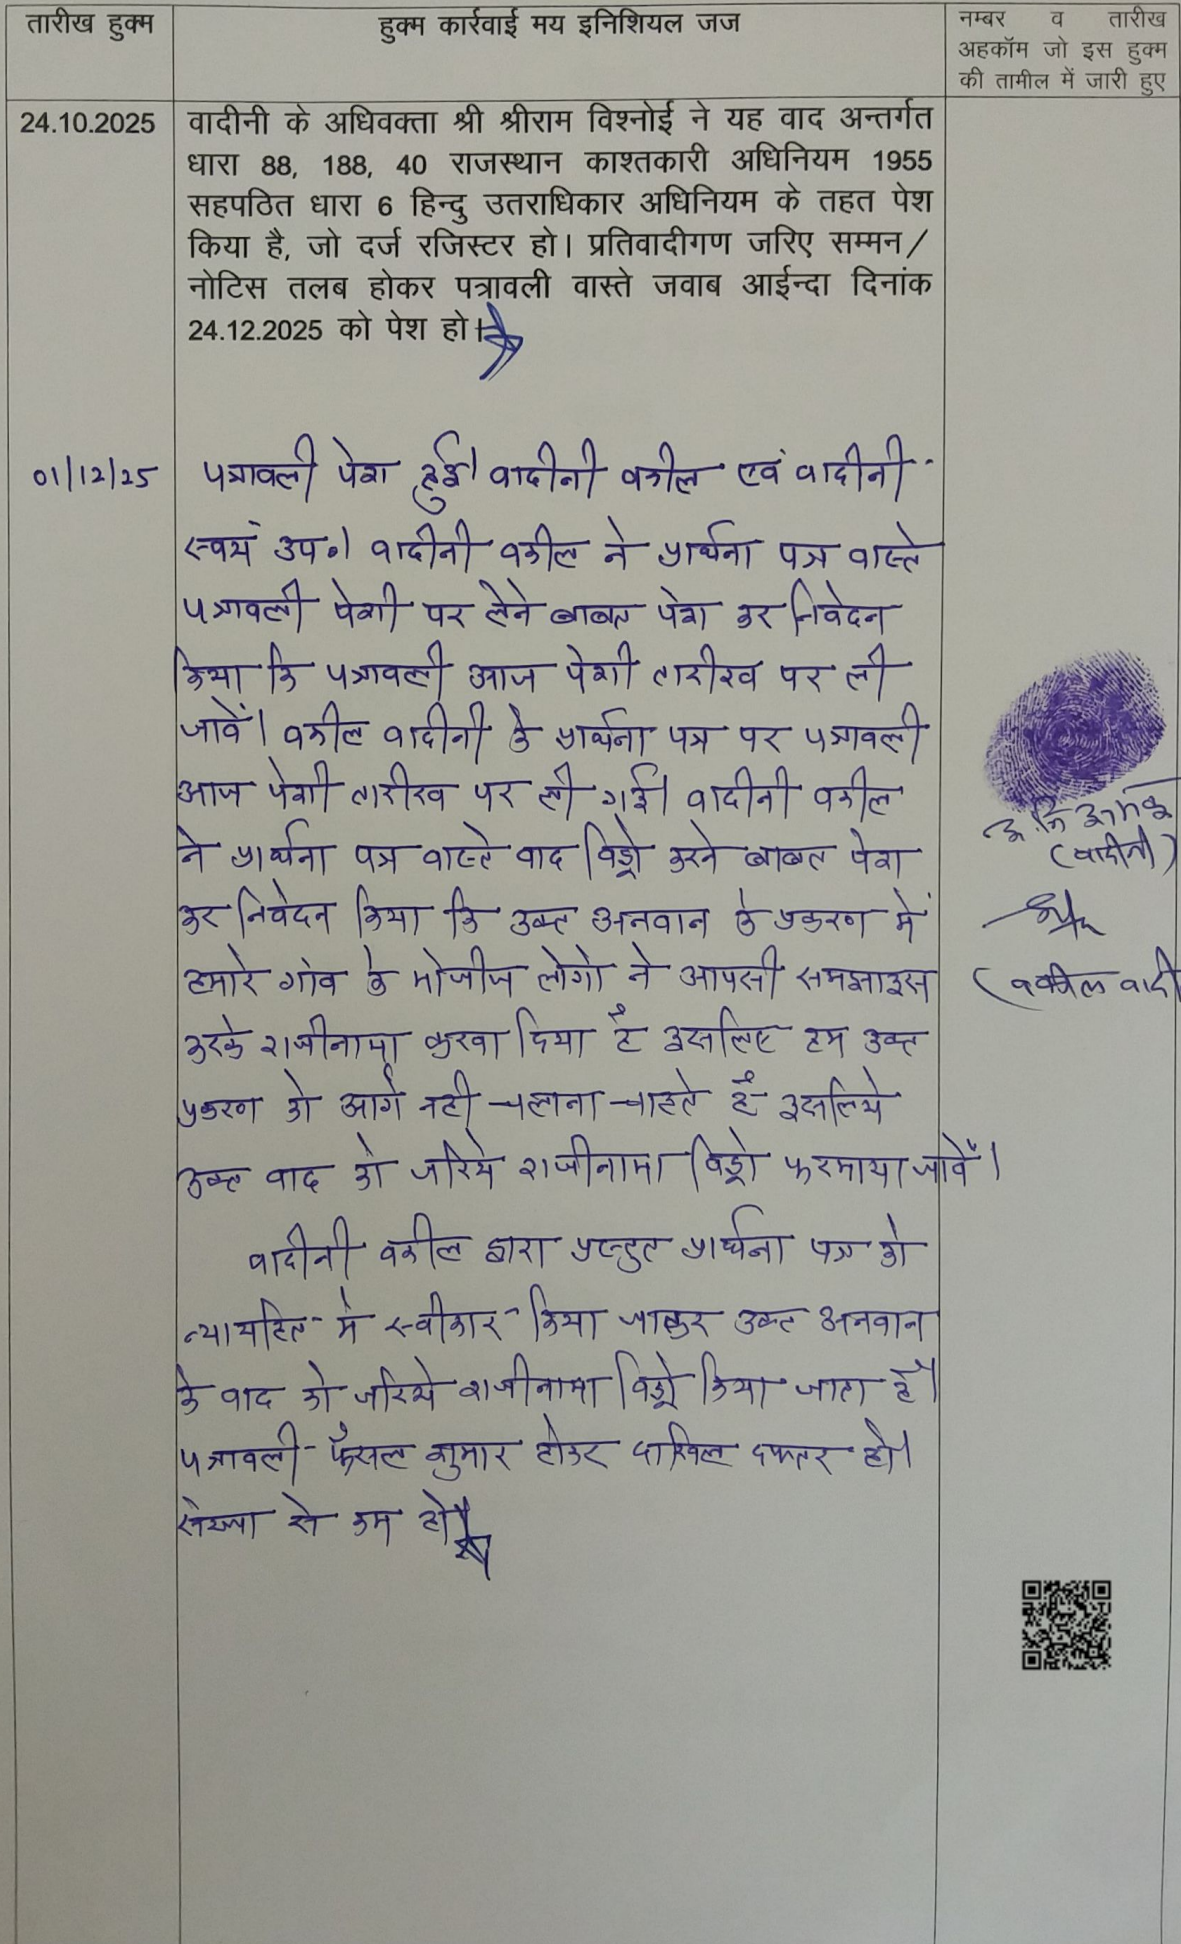 तारीख हुक्म
हुक्म कार्रवाई मय इनिशियल जज
नम्बर व तारीख
अहकॉम जो इस हुक्म
की तामील में जारी हुए
24.10.2025
वादीनी के अधिवक्ता श्री श्रीराम विश्नोई ने यह वाद अन्तर्गत
धारा 88, 188, 40 राजस्थान काश्तकारी अधिनियम 1955
सहपठित धारा 6 हिन्दु उतराधिकार अधिनियम के तहत पेश
किया है, जो दर्ज रजिस्टर हो। प्रतिवादीगण जरिए सम्मन/
नोटिस तलब होकर पत्रावली वास्ते जवाब आईन्दा दिनांक
24.12.2025 को पेश हो।
01/12/25
पत्रावली पेश हुई। वादीनी वकील एवं वादीनी
स्वयं उप०। वादीनी वकील ने प्रार्थना पत्र वास्ते
पत्रावली पेशी पर लेने बाबत पेश कर निवेदन
किया कि पत्रावली आज पेशी तारीख पर ली
जावें। वकील वादीनी के प्रार्थना पत्र पर पत्रावली
आज पेशी तारीख पर ली गई। वादीनी वकील
ने प्रार्थना पत्र वास्ते वाद विड्रो करने बाबत पेश
कर निवेदन किया कि उक्त अनवान के प्रकरण में
हमारे गांव के मोजीज लोगो ने आपसी समझाइस
करके राजीनामा करवा दिया है इसलिए हम उक्त
प्रकरण को आगे नही चलाना चाहते है इसलिये
उक्त वाद को जरिये राजीनामा विड्रो फरमाया जावें।
वादीनी वकील द्वारा प्रस्तुत प्रार्थना पत्र को
न्यायहित में स्वीकार किया जाकर उक्त अनवान
के वाद को जरिये राजीनामा विड्रो किया जाता है।
पत्रावली फैसल शुमार होकर दाखिल दफ्तर हो।
संख्या से कम हो।
(वादीनी)
(वकील वादी